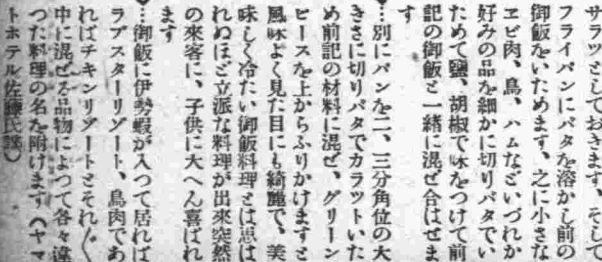 サラツとしておきます、そして
フライパンにバタを溶かし前の
御飯をいためます、之に小さな
エビ肉、鳥、ハムなどいづれか
好みの品を細かに切りバタでい
ためて鹽、胡椒で味をつけて前
記の御飯と一緒に混ぜ合はせま
す
…別にパンを二、三分角位の大
きさに切りバタでカラツトいた
め前記の材料に混ぜ、グリーン
ピースを上からふりかけますと
風味よく見た目にも綺麗で、美
味しく冷たい御飯料理とは思は
れぬほど立派な料理が出來突然
の來客に、子供に大へん喜ばれ
ます
…御飯に伊勢蝦が入つて居れば
ラブスターリゾート、鳥肉であ
ればチキンリゾートとそれ〲
中に混ぜる品物によつて各々違
つた料理の名を附けます（ヤマ
トホテル佐藤氏談）